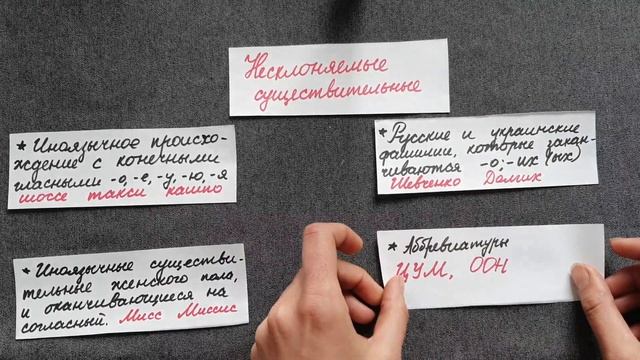 Несклоняемые
существительные
* Иноязычное происхо-
ждение с конечными
гласными -о, -е, -у, -ю, -я
шоссе такси кашпо
* Русские и украинские
фамилии, которые закан-
чиваются -о; -их (ых)
Шевченко Долгих
* Иноязычные существи-
тельные женского пола,
и оканчивающиеся на
согласный. Мисс Миссис
* Аббревиатуры
ЦУМ, ООН